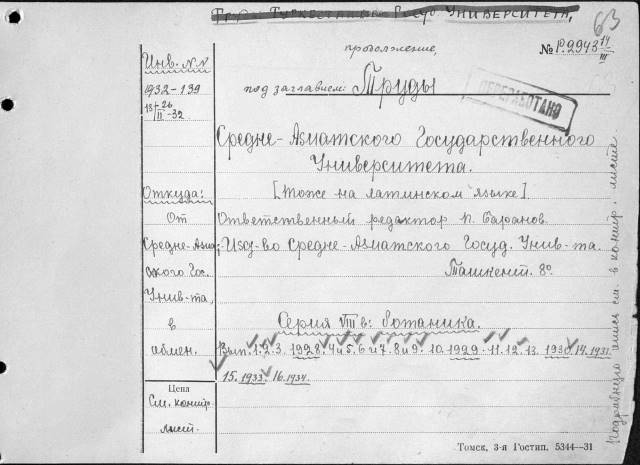 Тр. Туркестанск. Госуд. Университета,
63
продолжение,
№ Р.2943 14/III
Инв. N.N
1932-139
13 26/II -32
под заглавием: Труды
ПЕРЕРАБОТАНО
Средне-Азиатского Государственного
Университета.
Откуда:
[тоже на латинском языке].
От
Ответственный редактор П. Баранов.
Средне-Азиа
Изд-во Средне-Азиатского Госуд. Унив-та.
ского Гос.
Ташкент. 8°.
Унив-та,
в
Серия VIII в: Ботаника.
обмен.
Вып. 1. 2. 3. 1928. 4 и 5. 6 и 7. 8 и 9. 10. 1929. 11. 12. 13. 1930. 14. 1931.
15. 1933. 16. 1934.
Цена
См. контр.
лист.
Томск, 3-я Гостип. 5344—31
опись см. в контр. листе